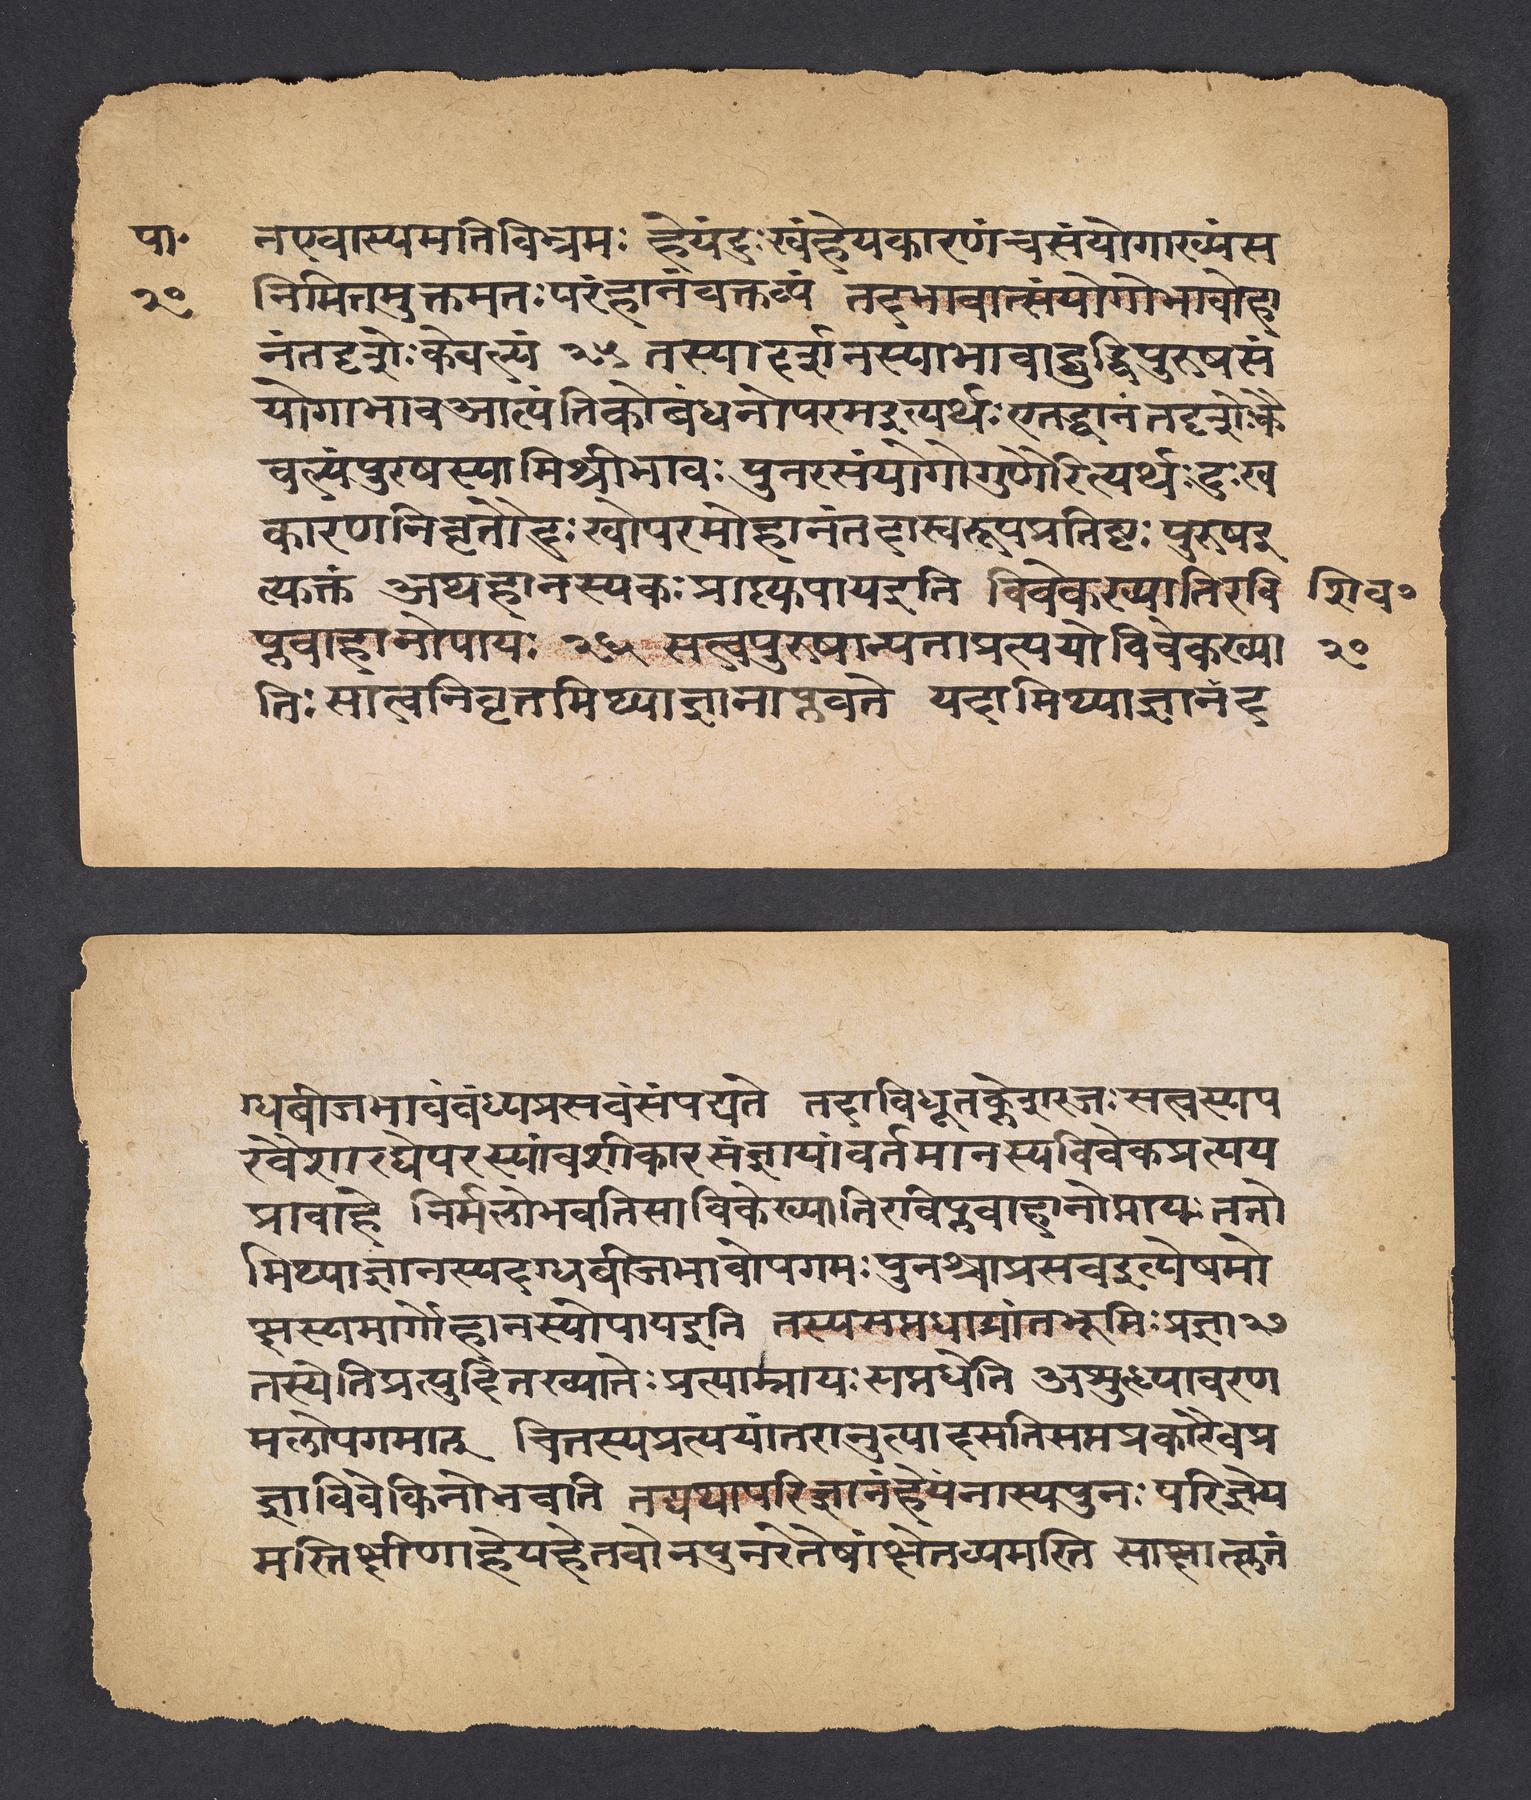 पा॰ नएवास्यमतिविभ्रमः हेयंदुःखंहेयकारणंचसंयोगाख्यंस
२० निमित्तमुक्तमतःपरंहानंवक्तव्यं तदभावात्संयोगोभावोहा
नंतदृशेःकेवल्यं २५ तस्यादर्शनस्याभावाद्बुद्धिपुरुषसं
योगाभावआत्यंतिकोबंधनोपरमइत्यर्थःएतद्धानंतदृशेःकै
वल्यंपुरषस्यामिश्रीभावः पुनरसंयोगोगुणैरित्यर्थःदुःख
कारणनिवृतौदुःखोपरमोहानंतदास्वरूपप्रतिष्ठः पुरुषइ
त्यक्तं अथहानस्यकःप्राप्त्यपायइति विवेकख्यातिरवि शिव॰
प्लवाहानोपायः २६ सत्वपुरुषान्यताप्रत्ययोविवेकख्या २०
तिःसात्वनिवृत्तमिथ्याज्ञानाप्लवते यदामिथ्याज्ञानंद
ग्धबीजभावंवंध्यप्रसवंसंपद्यते तदाविधूतक्लेशरजःसत्वस्यप
रेवेशारद्येपरस्यांवशीकारसंज्ञायांवर्तमानस्यविवेकप्रत्यय
प्रावाहे निर्मलोभवतिसाविकेख्यातिरविप्लवाहानोपायःततो
मिथ्याज्ञानस्यदग्धबीजभावोपगमःपुनश्चाप्रसवइत्येषमो
क्षस्यमार्गोहानस्योपायइति तस्यसप्तधाप्रांतभूमिःप्रज्ञा२७
तस्येतिप्रत्युदितख्यातेःप्रत्याम्नायःसप्तधेति अशुध्यावरण
मलोपगमात् चितस्यप्रत्ययांतरानुत्पादसतिसप्तप्रकारैवप्र
ज्ञाविवेकिनोभवति तद्यथापरिज्ञानंहेयंनास्यपुनःपरिज्ञेय
मस्तिक्षीणाहेयहेतवोनपुनरेतेषांक्षेतव्यमस्ति साक्षात्कृतं